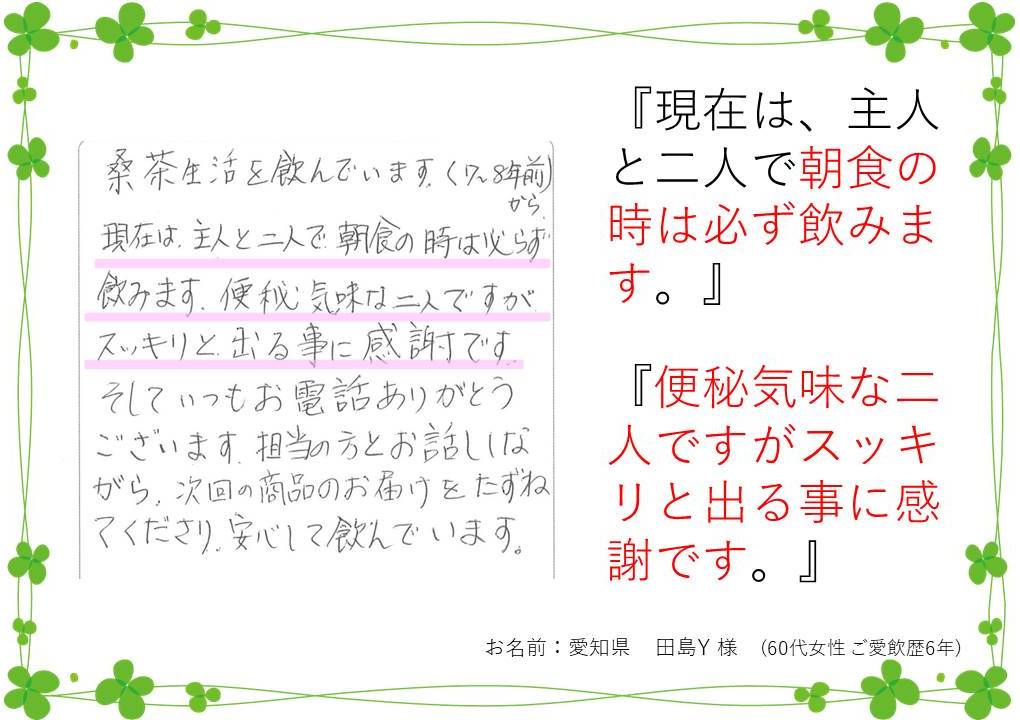 桑茶生活を飲んでいます。(7~8年前)
から、
現在は、主人と二人で、朝食の時は必らず
飲みます。便秘気味な二人ですが、
スッキリと出る事に感謝です。
そしていつもお電話ありがとう
ございます。担当の方とお話ししな
がら、次回の商品のお届けをたずね
てくださり、安心して飲んでいます。
『現在は、主人
と二人で朝食の
時は必ず飲みま
す。』
『便秘気味な二
人ですがスッキ
リと出る事に感
謝です。』
お名前：愛知県　田島Y 様　(60代女性 ご愛飲歴6年)